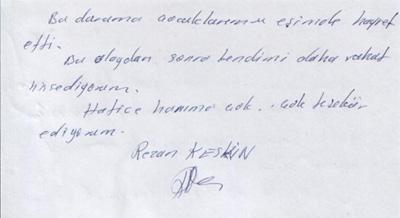 Bu durama çocuklarımu eşimde hayret
etti.
Bu olaydan sonra kendimi daha rahat
hissediyorum.
Hatice hanıma çok.. çok teşekür
ediyorum.
Rezan KESKİN